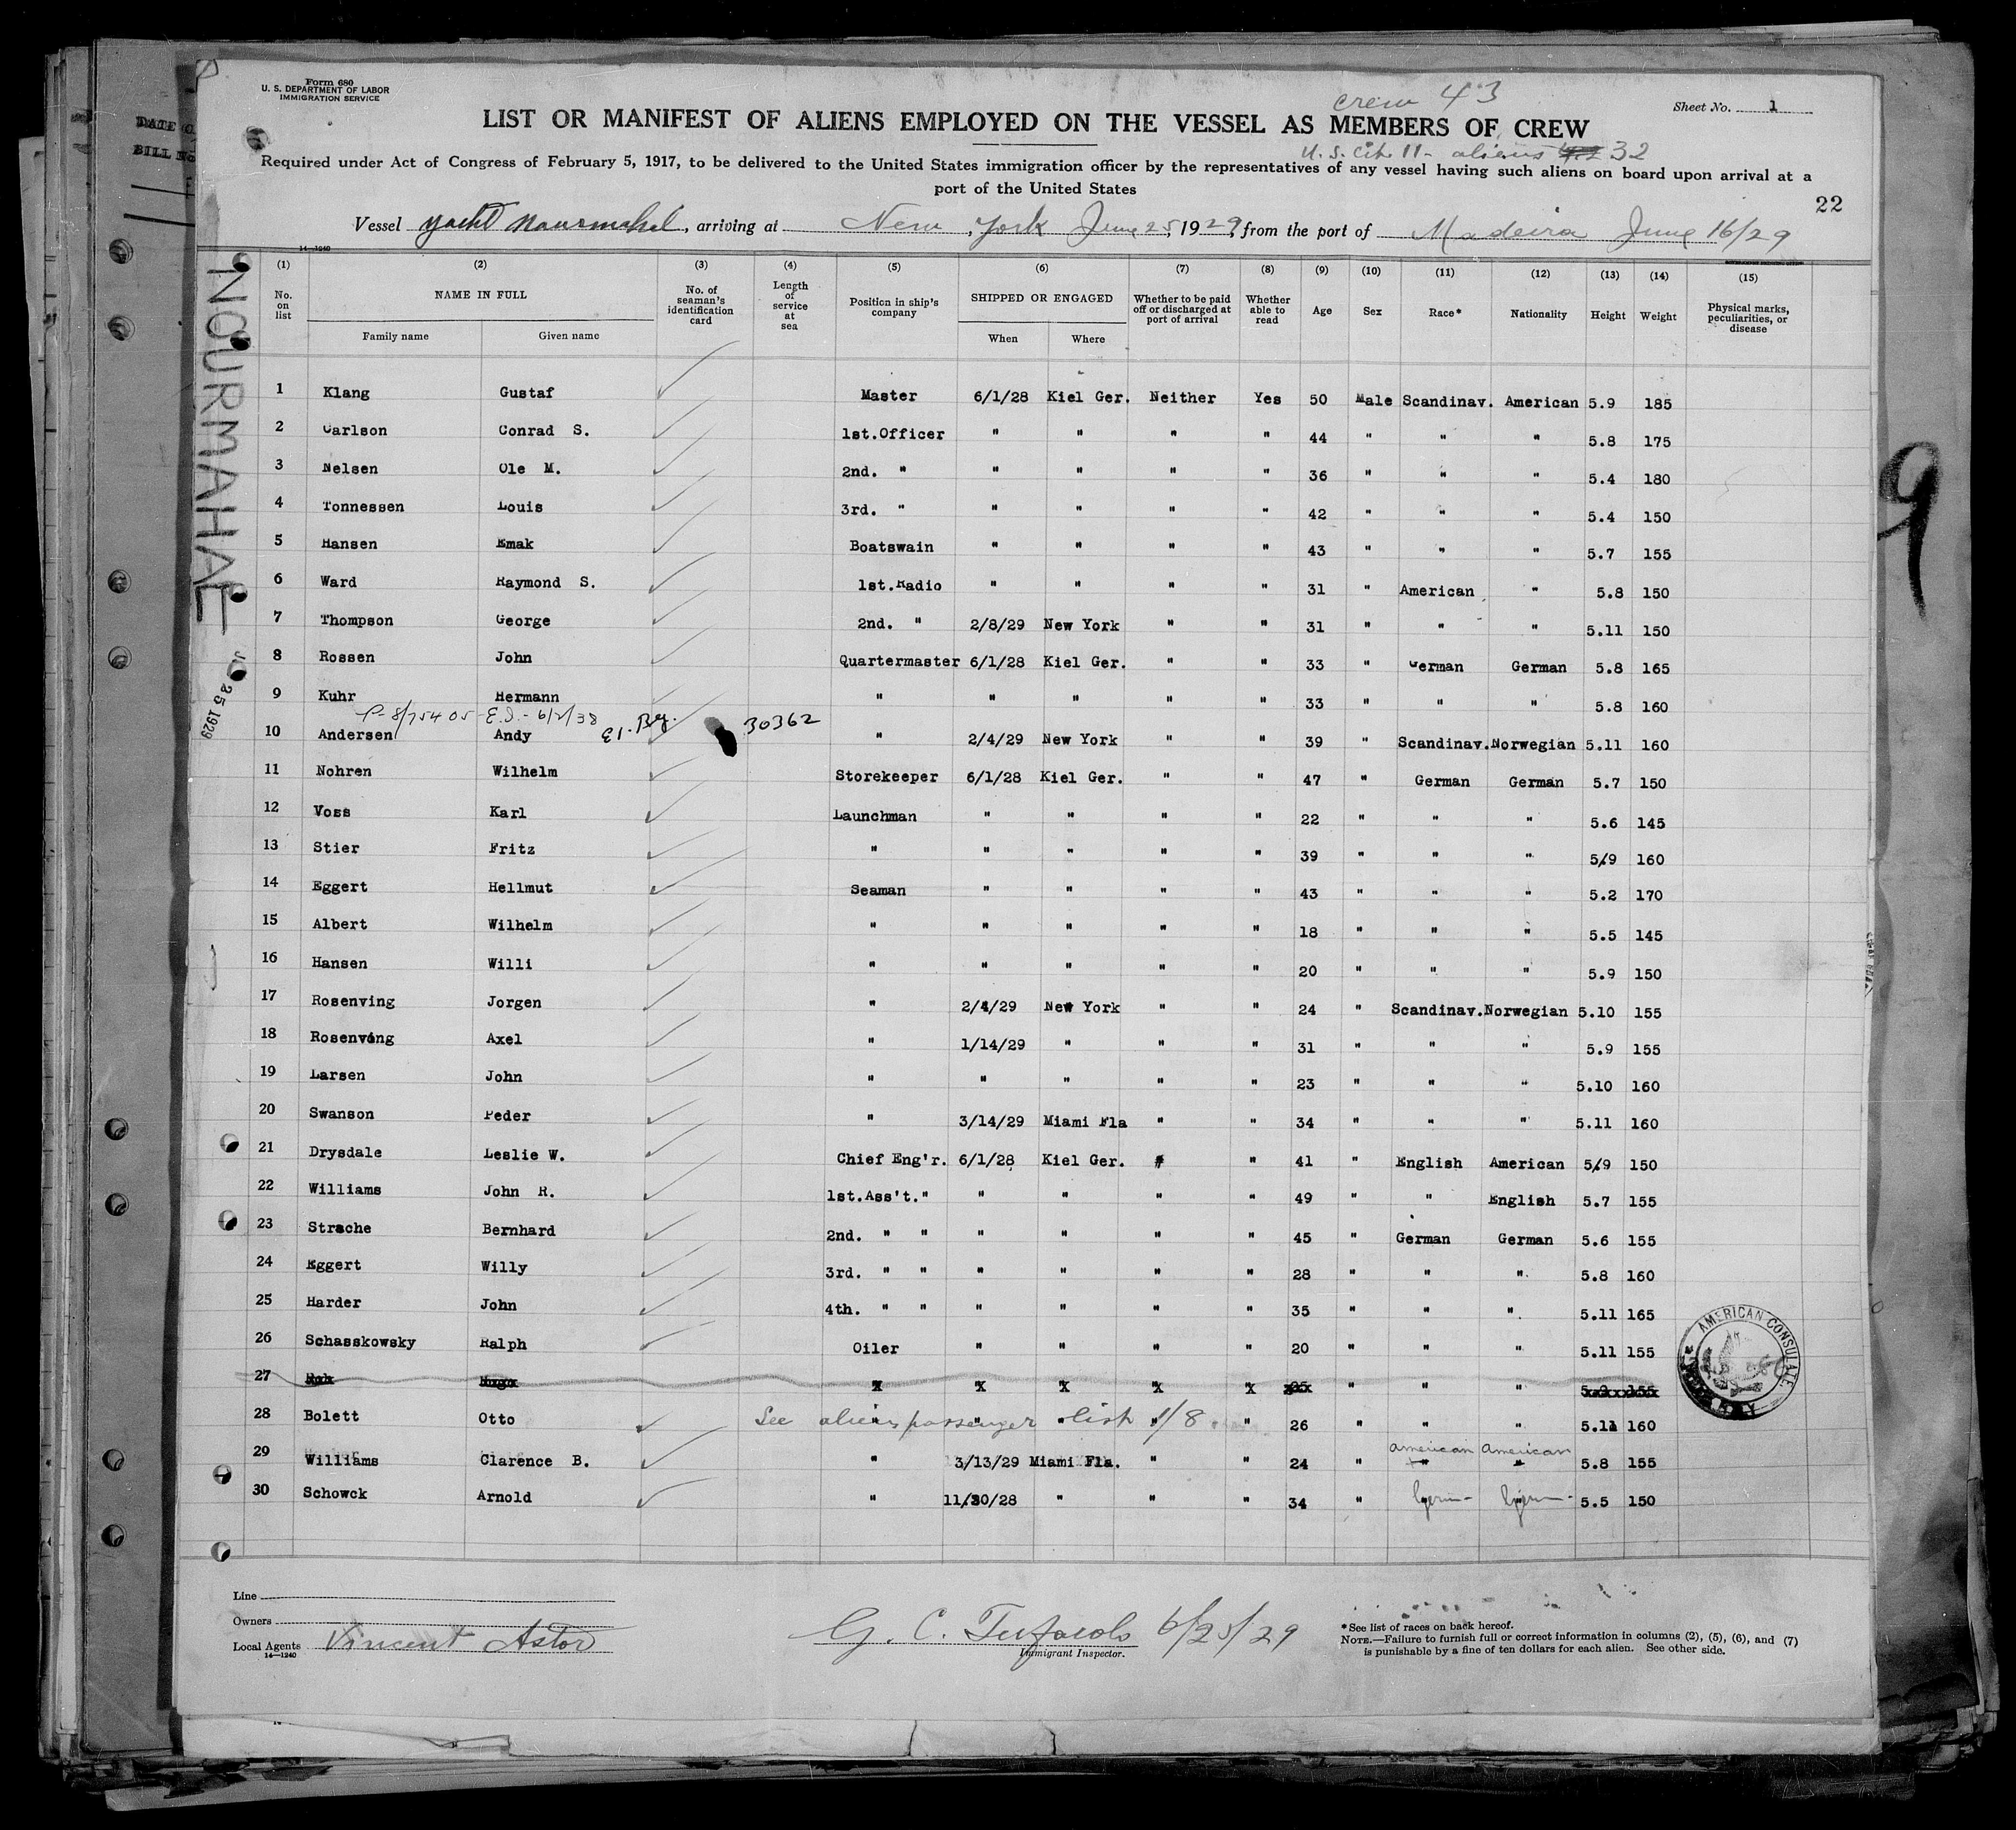 Form 680
U. S. DEPARTMENT OF LABOR
IMMIGRATION SERVICE
crew 43
Sheet No. 1
LIST OR MANIFEST OF ALIENS EMPLOYED ON THE VESSEL AS MEMBERS OF CREW
U.S. cit. 11 - aliens 32
Required under Act of Congress of February 5, 1917, to be delivered to the United States immigration officer by the representatives of any vessel having such aliens on board upon arrival at a
port of the United States
22
Vessel yacht Nourmahal, arriving at New York June 25, 1929, from the port of Madeira June 16/29
14—1240
NOURMAHAL
25 1929
9
(1) (2) (3) (4) (5) (6) (7) (8) (9) (10) (11) (12) (13) (14) (15)
No. on list NAME IN FULL Family name Given name No. of seaman's identification card Length of service at sea Position in ship's company SHIPPED OR ENGAGED When Where Whether to be paid off or discharged at port of arrival Whether able to read Age Sex Race* Nationality Height Weight Physical marks, peculiarities, or disease
1 Klang Gustaf Master 6/1/28 Kiel Ger. Neither Yes 50 Male Scandinav. American 5.9 185
2 Carlson Conrad S. 1st.Officer " " " " 44 " " " 5.8 175
3 Nelsen Ole M. 2nd. " " " " " 36 " " " 5.4 180
4 Tonnessen Louis 3rd. " " " " " 42 " " " 5.4 150
5 Hansen Emak Boatswain " " " " 43 " " " 5.7 155
6 Ward Raymond S. 1st.Radio " " " " 31 " American " 5.8 150
7 Thompson George 2nd. " 2/8/29 New York " " 31 " " " 5.11 150
8 Rossen John Quartermaster 6/1/28 Kiel Ger. " " 33 " German German 5.8 165
9 Kuhr Hermann " " " " " 33 " " " 5.8 160
P-8/75405-E.I.-6/2/38 30362
10 Andersen Andy " 2/4/29 New York " " 39 " Scandinav. Norwegian 5.11 160
11 Nohren Wilhelm Storekeeper 6/1/28 Kiel Ger. " " 47 " German German 5.7 150
12 Voss Karl Launchman " " " " 22 " " " 5.6 145
13 Stier Fritz " " " " " 39 " " " 5/9 160
14 Eggert Hellmut Seaman " " " " 43 " " " 5.2 170
15 Albert Wilhelm " " " " " 18 " " " 5.5 145
16 Hansen Willi " " " " " 20 " " " 5.9 150
17 Rosenving Jorgen " 2/4/29 New York " " 24 " Scandinav. Norwegian 5.10 155
18 Rosenving Axel " 1/14/29 " " " 31 " " " 5.9 155
19 Larsen John " " " " " 23 " " " 5.10 160
20 Swanson Peder " 3/14/29 Miami Fla " " 34 " " " 5.11 160
21 Drysdale Leslie W. Chief Eng'r. 6/1/28 Kiel Ger. " " 41 " English American 5/9 150
22 Williams John R. 1st.Ass't." " " " " 49 " " English 5.7 155
23 Strache Bernhard 2nd. " " " " " " 45 " German German 5.6 155
24 Eggert Willy 3rd. " " " " " " 28 " " " 5.8 160
25 Harder John 4th. " " " " " " 35 " " " 5.11 165
26 Schasskowsky Ralph Oiler " " " " 20 " " " 5.11 155
27 X X X X X " " "
28 Bolett Otto See alien passenger list 1/8 " " " " " 26 " " " 5.11 160
american American
29 Williams Clarence B. " 3/13/29 Miami Fla. " " 24 " " " 5.8 155
30 Schowck Arnold " 11/30/28 " " " 34 " Germ- Germ- 5.5 150
AMERICAN CONSULATE
Line
Owners
Local Agents Vincent Astor
14—1240
6/25/29
Immigrant Inspector.
*See list of races on back hereof.
NOTE.—Failure to furnish full or correct information in columns (2), (5), (6), and (7)
is punishable by a fine of ten dollars for each alien. See other side.